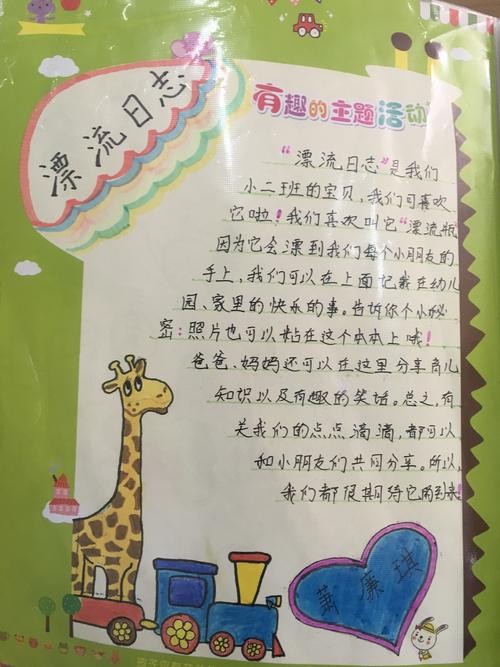 漂流日志
有趣的主题活动
“漂流日志”是我们
小二班的宝贝，我们可喜欢
它啦！我们喜欢叫它“漂流瓶”
因为它会漂到我们每个小朋友的
手上，我们可以在上面记载在幼儿
园、家里的快乐的事。告诉你个小秘
密：照片也可以粘在这个本本上哦！
爸爸、妈妈还可以在这里分享育儿
知识以及有趣的笑话。总之，有
关我们的点点滴滴，都可以
和小朋友们共同分享。所以，
我们都很期待它的到来！
萧廉琪